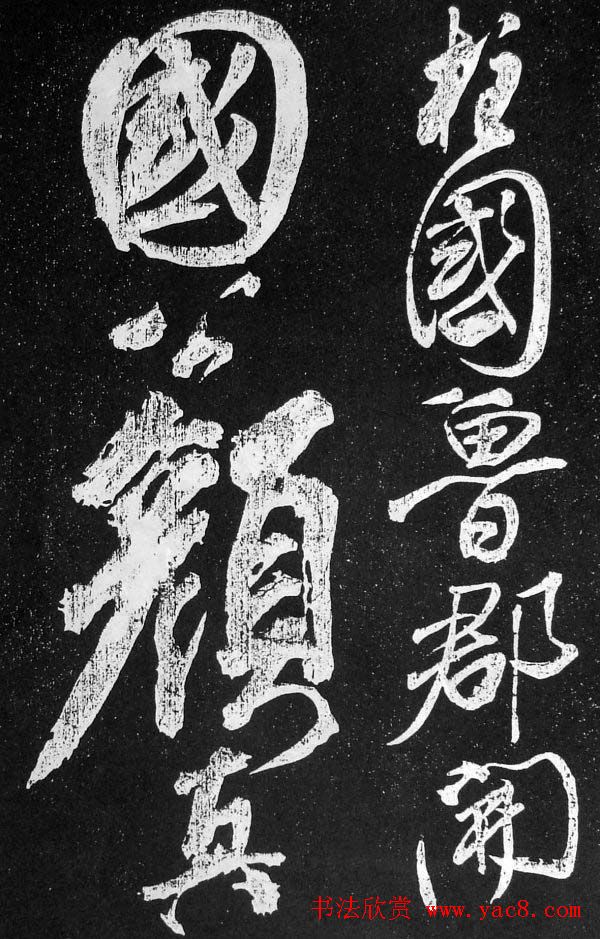 柱國魯郡開
國公顏真
书法欣赏 www.yac8.com